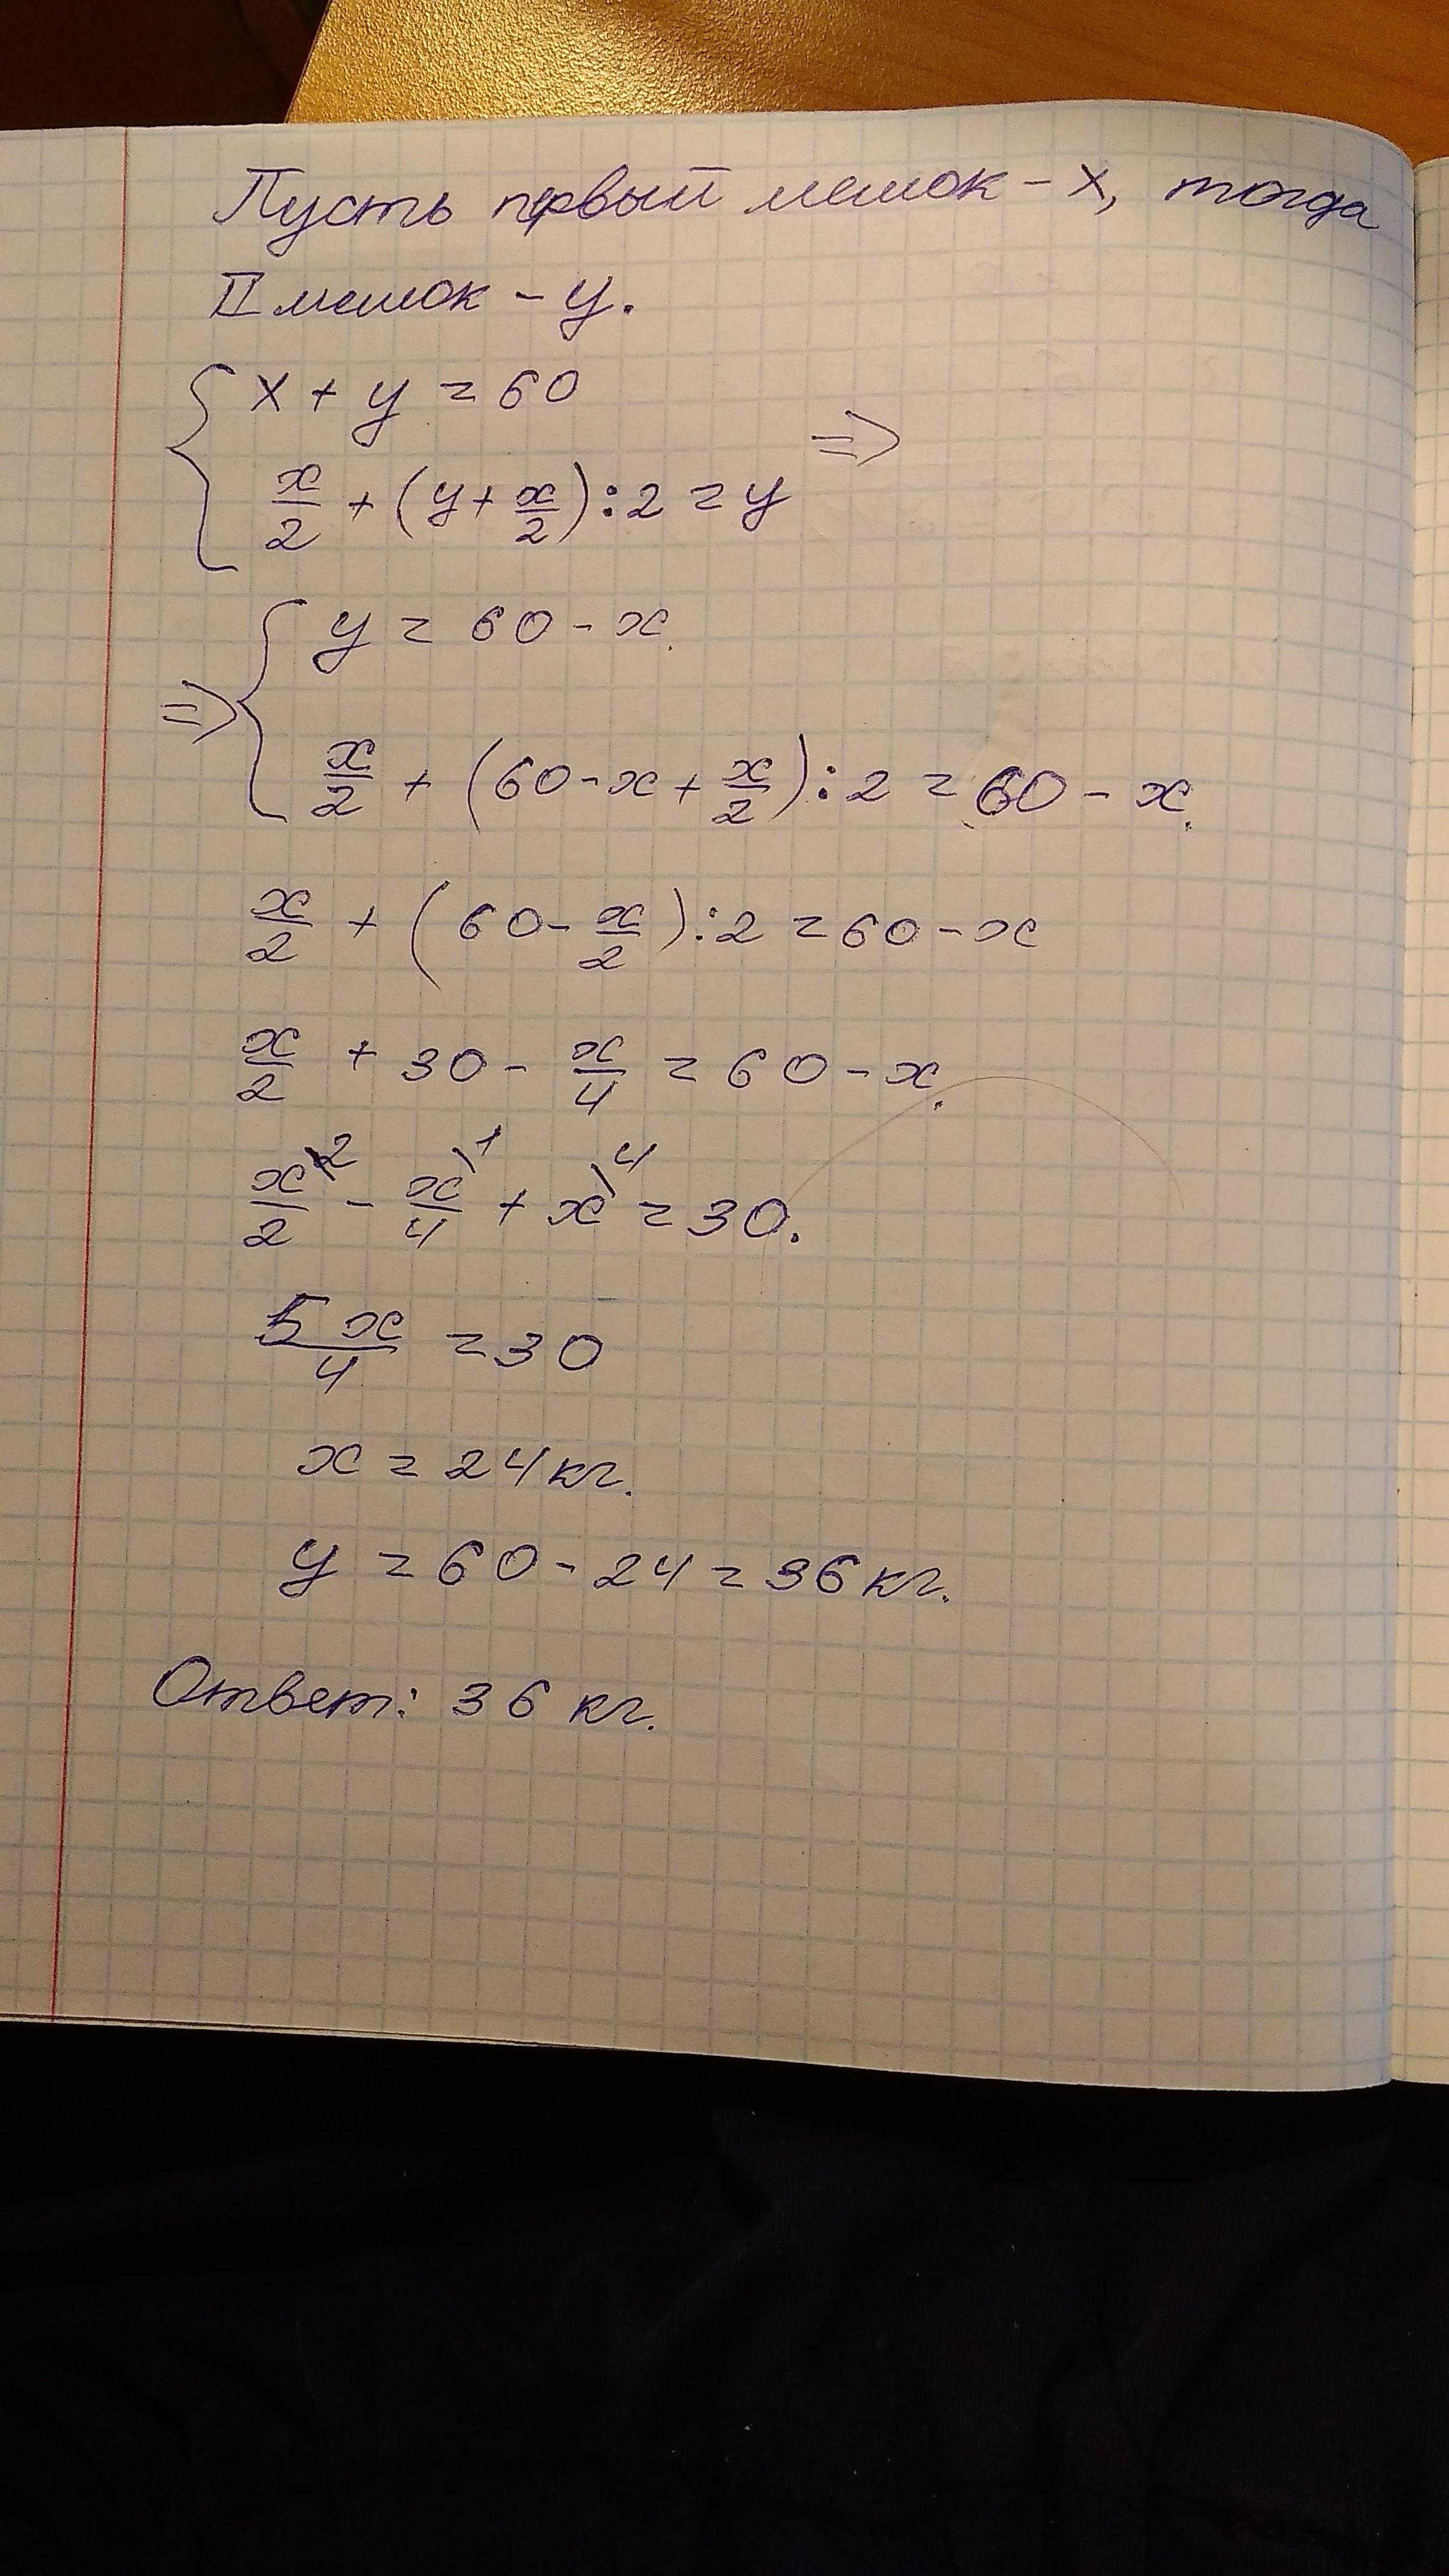 Пусть первый мешок - x, тогда
II мешок - y.
x + y = 60
x/2 + (y + x/2) : 2 = y =>
=> y = 60 - x.
x/2 + (60 - x + x/2) : 2 = 60 - x.
x/2 + (60 - x/2) : 2 = 60 - x
x/2 + 30 - x/4 = 60 - x.
x\2/2 - x\1/4 + x\4 = 30.
5x/4 = 30
x = 24 кг.
y = 60 - 24 = 36 кг.
Ответ: 36 кг.